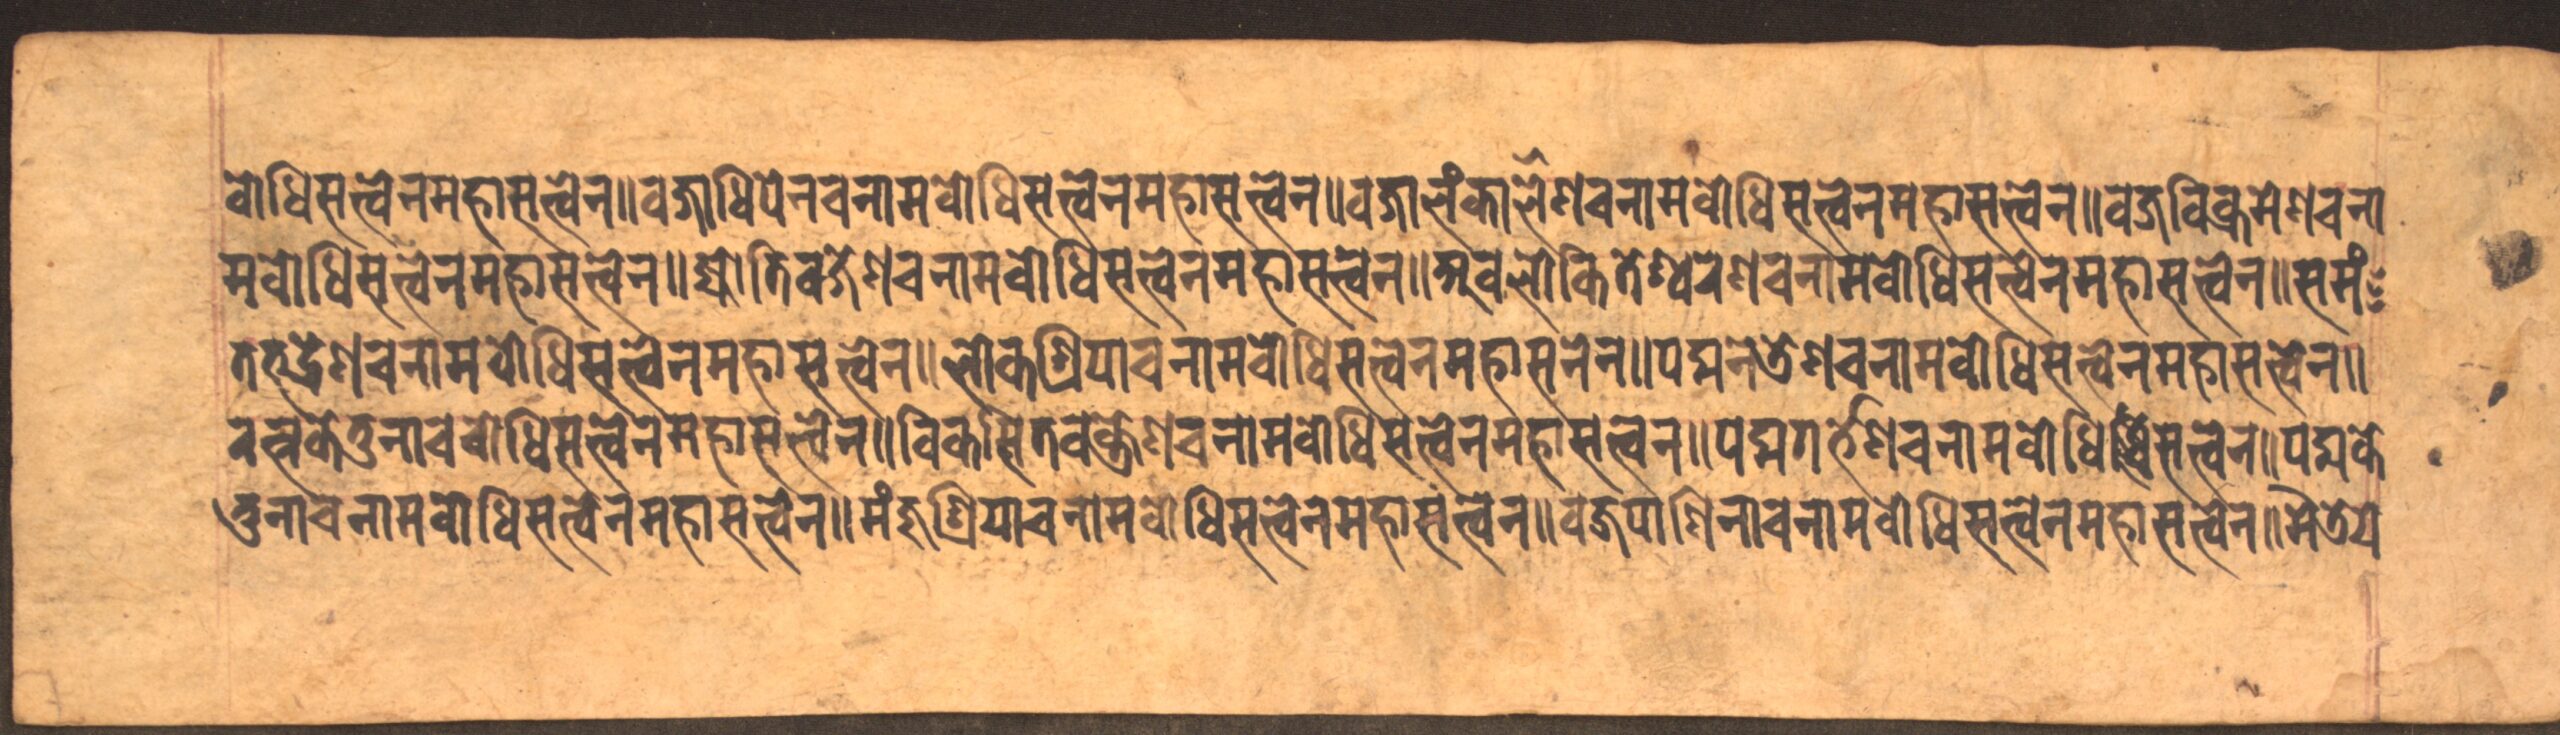 वोधिसत्त्वेनमहासत्त्वेन॥वज्राधिपेनचनामवोधिसत्त्वेनमहासत्त्वेन॥वज्रालंकालेणचनामवोधिसत्त्वेनमहासत्त्वेन॥वज्रविक्रमेणचना
मवोधिसत्त्वेनमहासत्त्वेन॥ज्योतिवज्रेणचनामवोधिसत्त्वेनमहासत्त्वन॥अवलोकितेश्वरेणचनामवोधिसत्त्वेनमहासत्त्वेन॥समं
तभद्रेणचनामवोधिसत्त्वेनमहासत्त्वेन॥लोकश्रियाचनामवोधिसत्त्वेनमहासनेन॥पद्मनेत्रेणचनामवोधिसत्त्वेनमहासत्त्वेन॥
रत्नकेतुनाचवोधिसत्त्वेनमहासत्त्वेन॥विकसितवक्त्रेणचनामवोधिसत्त्वेनमहासत्त्वन॥पद्मगर्भेणचनामवोधिसत्त्वेन॥पद्मके
तुनाचनामवोधिसत्त्वेनमहासत्त्वेन॥मंजुश्रियाचनामवोधिसत्त्वेनमहासत्त्वेन॥वज्रपाणिनाचनामवोधिसत्त्वेनमहासत्त्वेन॥मैत्रेये